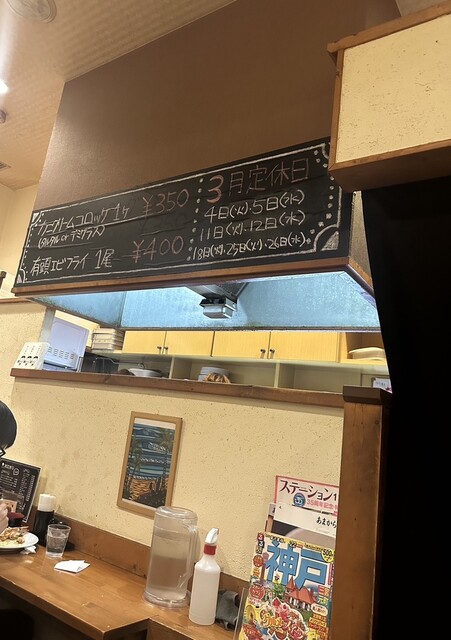 クリームコロッケ1ヶ ¥350
(タルタル or デミグラス)
有頭エビフライ 1尾 ¥400
3月定休日
4日(火)・5日(水)
11日(火)・12日(水)
18日(火)・25日(火)・26日(水)
ステーション
35周年記念
あまから
神戸